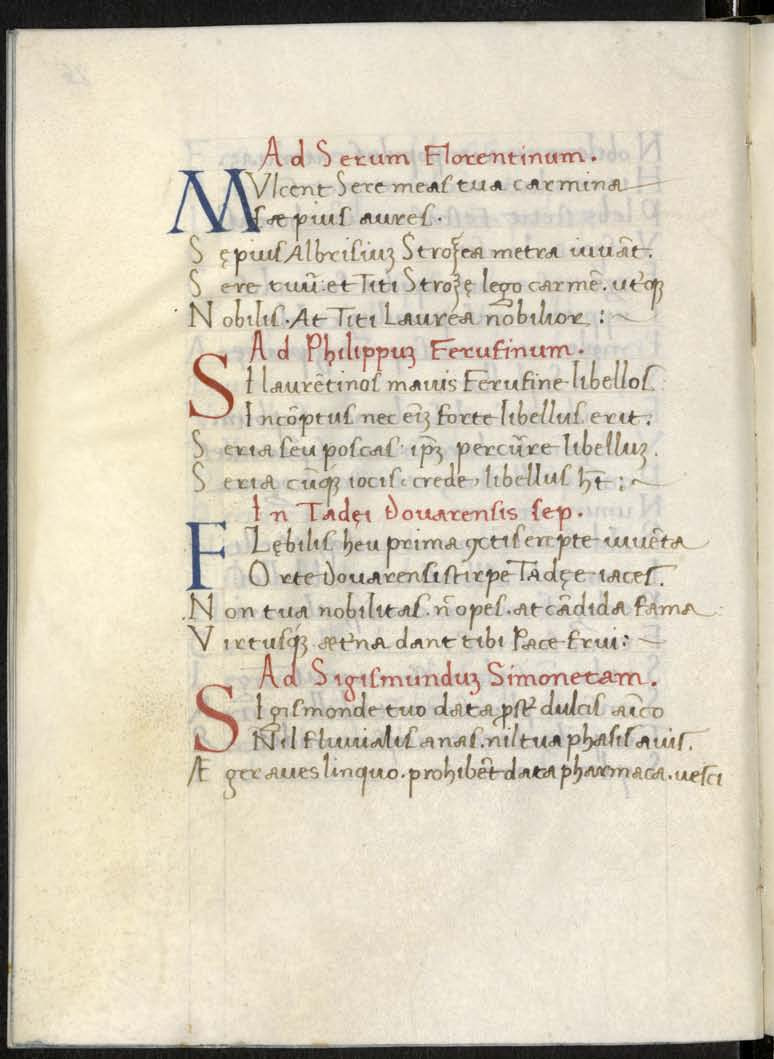 Ad Serum Florentinum.
MVlcent Sere meas tua carmina
sæpius aures.
Sępius Albrisiuʒ Stroʒea metra iuuāt.
Sere tuū: et Titi Stroʒę lego carmē. utqꝫ
Nobilis. At Titi Laurea nobilior :~
Ad Philippuʒ Ferufinum.
SI laurētinos mauis Ferufine libellos
Incōptus nec eīʒ forte libellus erit.
Seria seu poscas: ipʒ percurre libelluʒ.
Seria cūqꝫ iocis: crede, libellus ht̄ :~
In Tadęi Douarensis sep.
FLębilis heu prima ꝯctis erepte iuuēta
Orte Douarensi stirpe Tadęe iaces.
Non tua nobilitas. n̄ opes. at cādida fama
Virtusqꝫ æt'na dant tibi Pace frui: ~
Ad Sigismunduʒ Simonetam.
SIgismonde tuo data ꝓst dulcis aīco
Nil fluuialis anas. nil tua phasis auis.
Æger aues linquo. prohibēt data pharmaca. uesci